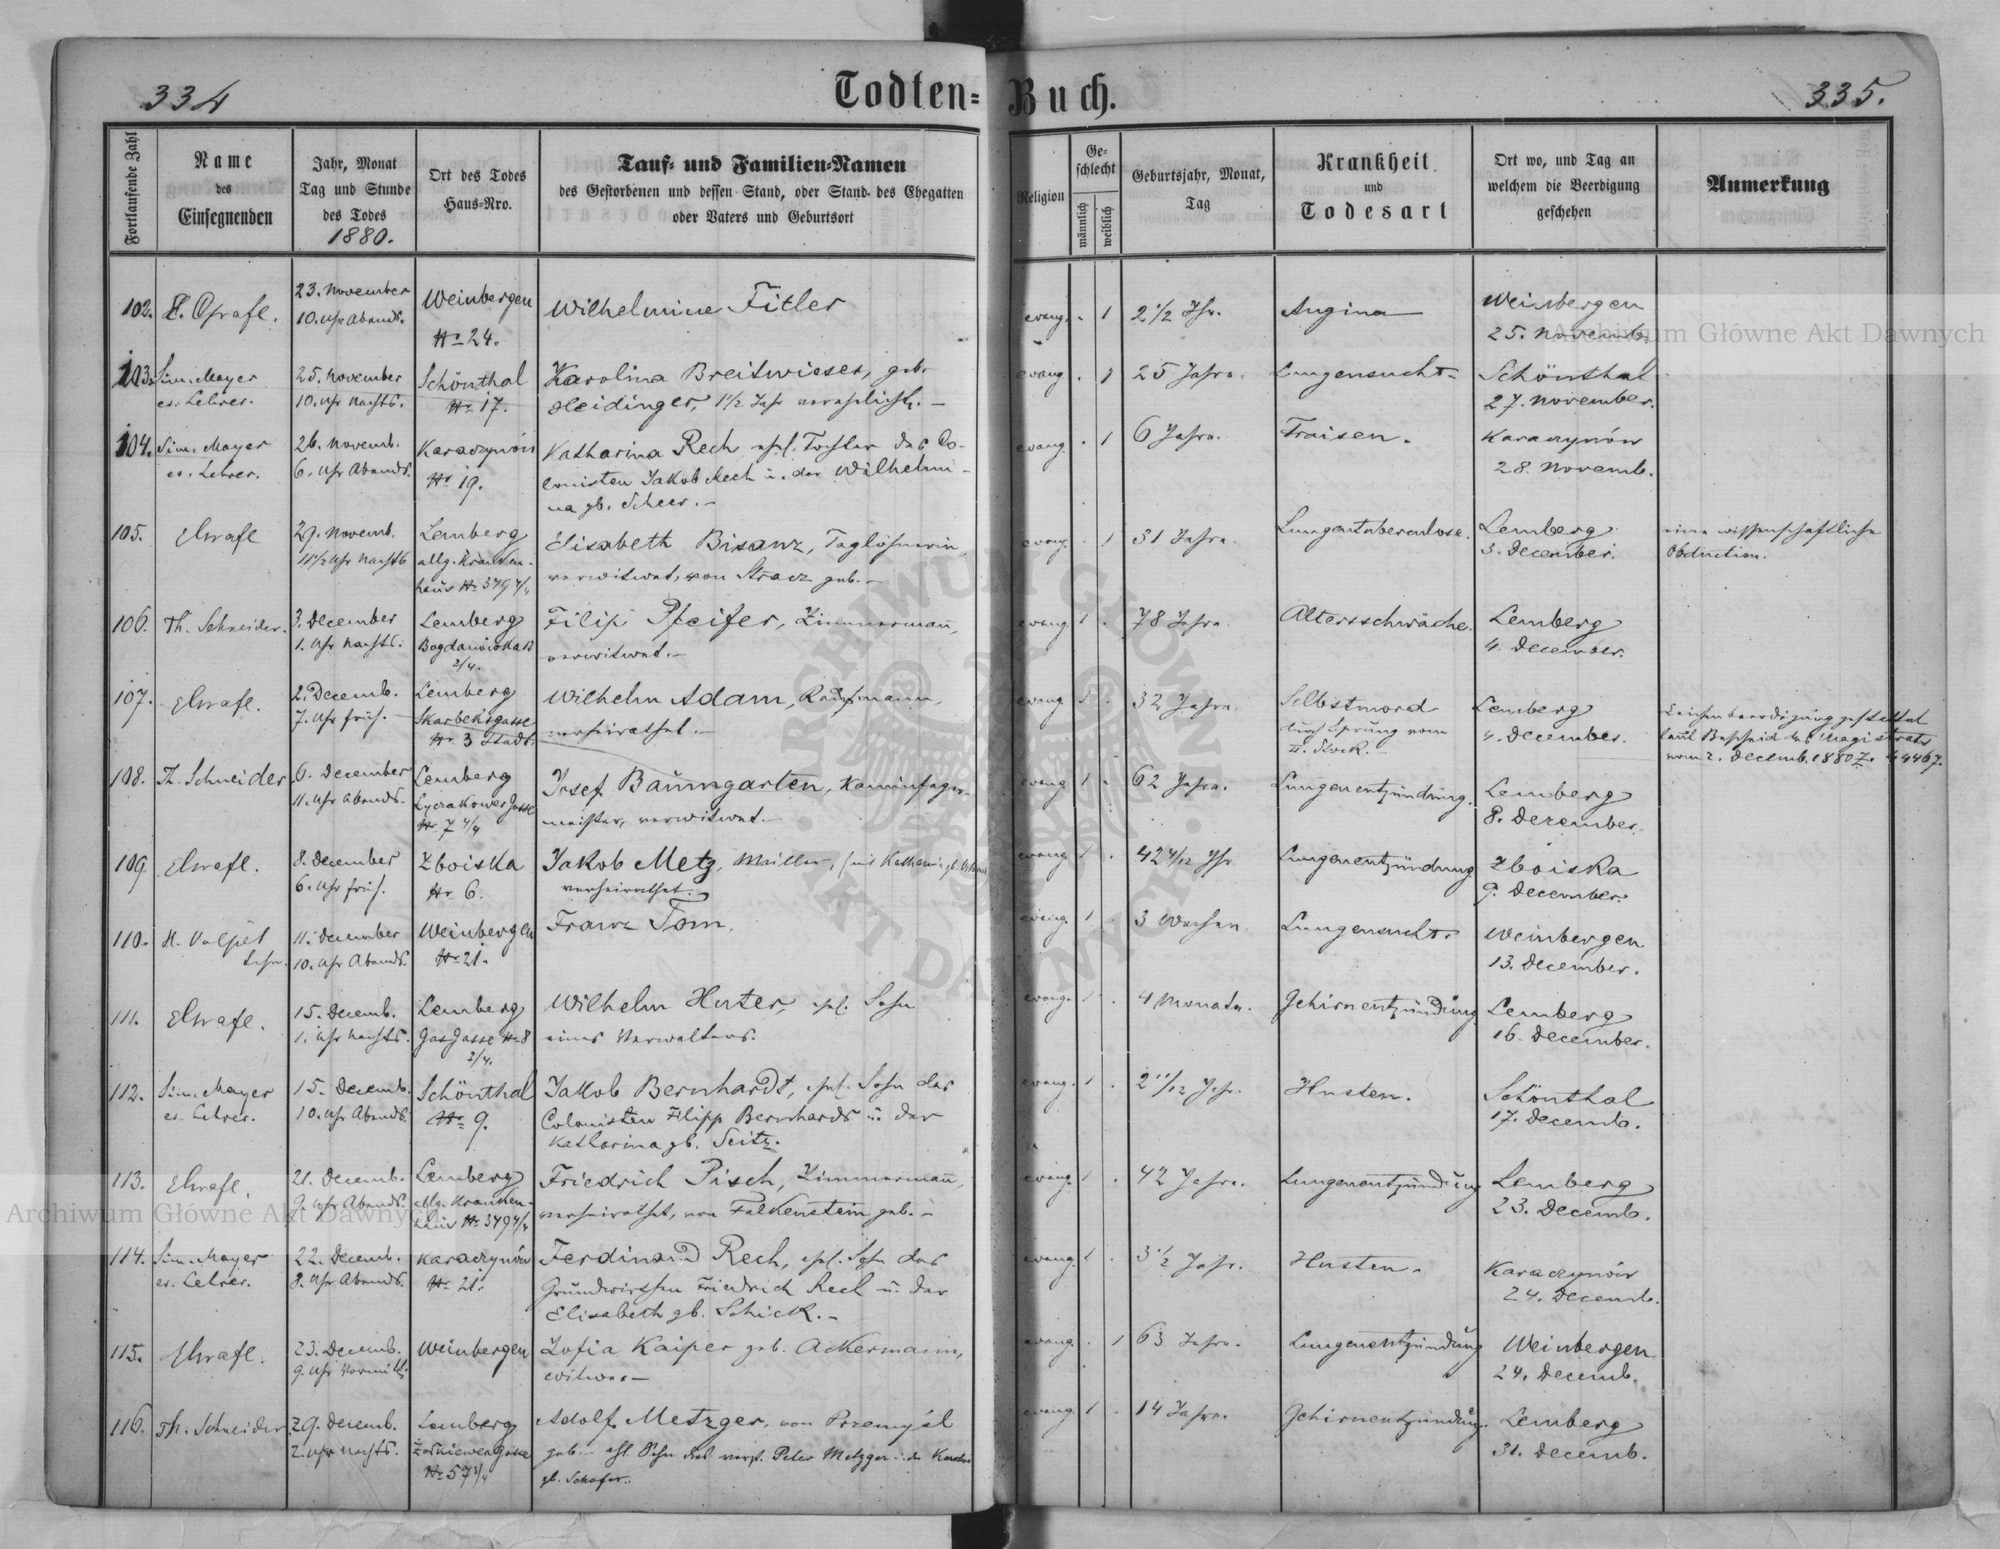 334
Todten-Buch.
335.
Fortlaufende Zahl
Name
des
Einsegnenden
Jahr, Monat
Tag und Stunde
des Todes
1880.
Ort des Todes
Haus-Nro.
Tauf- und Familien-Namen
des Gestorbenen und dessen Stand, oder Stand des Ehegatten
oder Vaters und Geburtsort
Religion
Ge-
schlecht
männlich
weiblich
Geburtsjahr, Monat,
Tag
Krankheit
und
Todesart
Ort wo, und Tag an
welchem die Beerdigung
geschehen
Anmerkung
102. 23. November Weinbergen Wilhelmine Fitler evang. 1 2 1/2 Jhr. Angina Weinbergen
10. Uhr Abends. Nr 24. 25. Novemb.
103. Sim. Mayer 25. November Schönthal Karolina Breitwieser, geb. evang. 1 25 Jahre. Lungensucht. Schönthal
ev. Lehrer. 10. Uhr Nachts. Nr 17. Heidinger, 1 1/2 Jahr verehelicht. 27. November.
104. Sim. Mayer 26. Novemb. Karaczynów Katharina Rech ehel. Tochter des Co- evang. 1 6 Jahre. Fraisen. Karaczynów
ev. Lehrer. 6. Uhr Abends. Nr 19. lonisten Jakob Rech u. der Wilhelmi- 28. Novemb.
na gb. Scheer.
105. 29. Novemb. Lemberg Elisabeth Bisanz, Taglöhnerin, evang. 1 31 Jahre. Lungentuberculose. Lemberg eine wissenschaftliche
11 1/2 Uhr Nachts allg. Kranken- verwitwet, von Stracz geb. 3. December. Obduction.
haus Nr 379 4/4
106. Th. Schneider. 3. December Lemberg Filip Pfeifer, Zimmermann, evang. 1 78 Jahre. Altersschwäche. Lemberg
1. Uhr Nachts. Bogdanówka verwitwet. 4. December.
2/4.
107. 2. Decemb. Lemberg Wilhelm Adam, Kaufmann, evang. 1 32 Jahre. Selbstmord Lemberg Leichenbeerdigung gestattet
7. Uhr früh. Skarbeksgasse verheirathet. durch Sprung vom 4. December. laut Bescheid des Magistrats
Nr 3 Stadt. II. Stock. vom 2. Decemb. 1880 Z. 44467.
108. Th. Schneider 6. December Lemberg Josef Baumgarten, Kaminfeger- evang. 1 62 Jahre. Lungenentzündung. Lemberg
11. Uhr Abends. Lyczakower Gasse meister, verwitwet. 8. Dezember.
Nr 7 4/4
109. 8. December Zboiska Jakob Metz, Müller, evang. 1 42 4/12 Jhr Lungenentzündung Zboiska
6. Uhr früh. Nr 6. verheirathet. 9. December.
110. H. Volpel 11. December Weinbergen Franz Tom. evang. 1 3 Wochen. Lungensucht. Weinbergen
Lehr. 10. Uhr Abends. Nr 21. 13. December.
111. 15. Decemb. Lemberg Wilhelm Huter, ehel. Sohn evang. 1 4 Monate. Gehirnentzündung Lemberg
1. Uhr Nachts. Gas Gasse Nr 8 eines Verwalters. 16. December.
2/4.
112. Sim. Mayer 15. Decemb. Schönthal Jakob Bernhardt, ehel. Sohn des evang. 1 2 11/12 Jhr. Husten. Schönthal
ev. Lehrer. 10. Uhr Abends. Nr 9. Colonisten Filipp Bernhardt u. der 17. Decemb.
Katharina gb. Seitz.
113. 21. Decemb. Lemberg Friedrich Pisch, Zimmermann, evang. 1 42 Jahre. Lungenentzündung Lemberg
9. Uhr Abends. allg. Kranken- verheirathet, von Falkenstein geb. 23. Decemb.
haus Nr 379 4/4
114. Sim. Mayer 22. Decemb. Karaczynów Ferdinand Rech, ehel. Sohn des evang. 1 3 1/2 Jahr. Husten. Karaczynów
ev. Lehrer. 8. Uhr Abends. Nr 21. Grundwirthen Friedrich Rech u. der 24. Decemb.
Elisabeth gb. Schick.
115. 23. Decemb. Weinbergen Zofia Kaiper geb. Ackermann, evang. 1 63 Jahre. Lungenentzündung Weinbergen
9. Uhr Vormitt. witwe 24. Decemb.
116. Th. Schneider 29. Decemb. Lemberg Adolf Metzger, von Przemyśl evang. 1 14 Jahre. Gehirnentzündung. Lemberg
2. Uhr Nachts. Żołkiewer Gasse geb. ehl. Sohn des verst. Peter Metzger u. der 31. Decemb.
Nr 57 3/4 gb. Schafer.
Archiwum Główne Akt Dawnych
Archiwum Główne Akt Dawnych
ARCHIWUM GŁÓWNE
AKT DAWNYCH